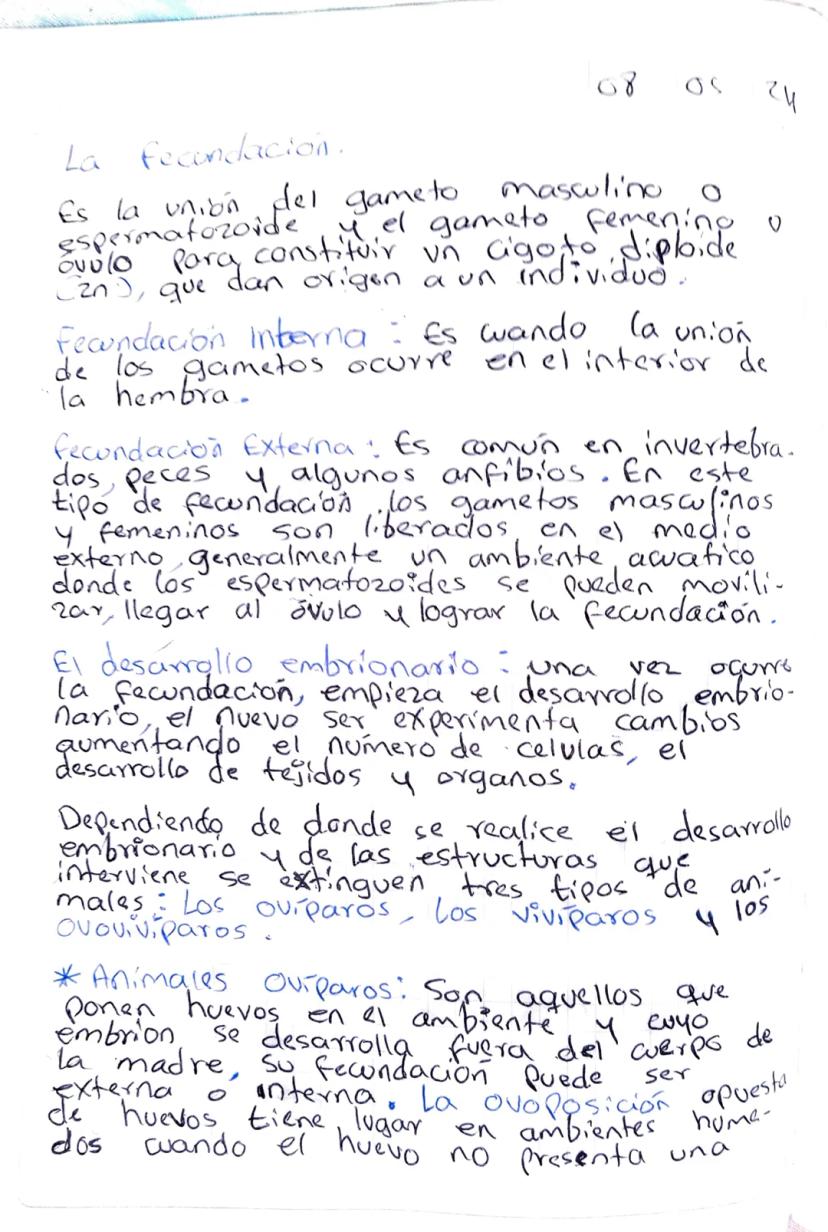 08 05 24
La fecundación.
Es la unión del gameto masculino o
espermatozoide y el gameto femenino o
óvulo para constituir un cigoto diploide
(2n), que dan origen a un individuo.
Fecundación Interna: Es cuando la unión
de los gametos ocurre en el interior de
la hembra.
fecundación Externa: Es común en invertebra-
dos, peces y algunos anfibios. En este
tipo de fecundación, los gametos masculinos
y femeninos son liberados en el medio
externo, generalmente un ambiente acuatico
donde los espermatozoides se pueden movili-
zar, llegar al óvulo y lograr la fecundación.
El desarrollo embrionario: una vez ocurre
la fecundación, empieza el desarrollo embrio-
nario, el nuevo ser experimenta cambios
aumentando el número de celulas, el
desarrollo de tejidos y organos.
Dependiendo de donde se realice el desarrollo
embrionario y de las estructuras que
interviene se extinguen tres tipos de ani-
males: Los ovíparos, los vivíparos y los
ovovivíparos.
* Animales Ovíparos: Son aquellos que
ponen huevos en el ambiente y cuyo
embrion se desarrolla fuera del cuerpo de
la madre, su fecundación puede ser
externa o interna. La ovoposición opuesta
de huevos tiene lugar en ambientes hume-
dos cuando el huevo no presenta una